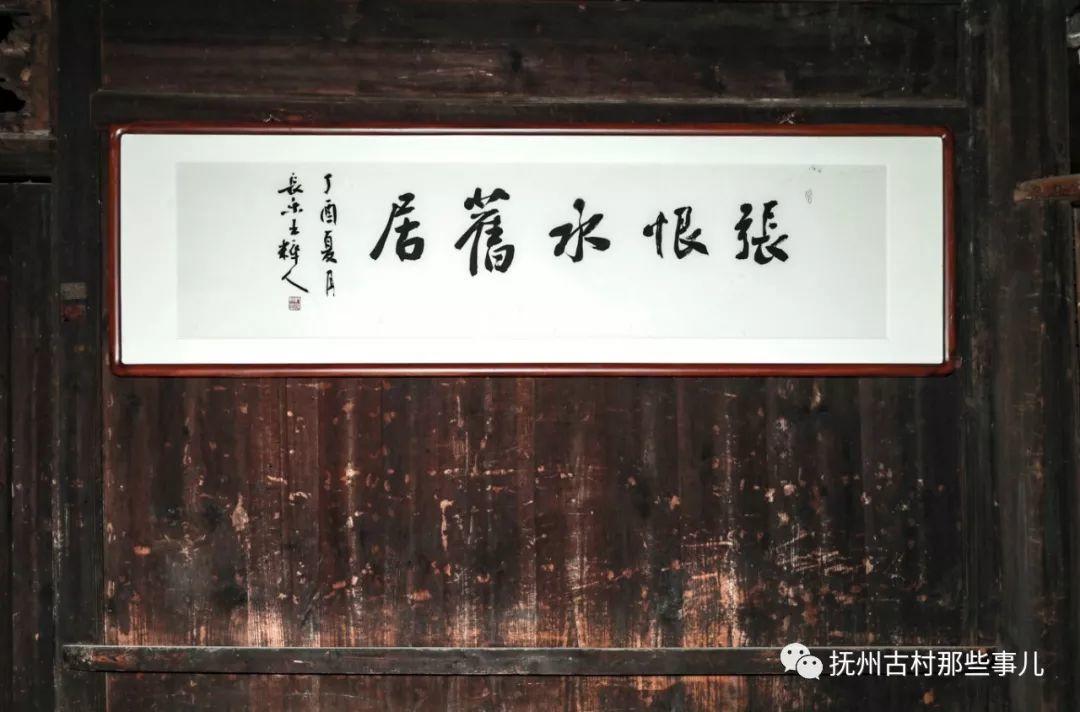 張恨水舊居
丁酉夏月
長樂土粹人
抚州古村那些事儿